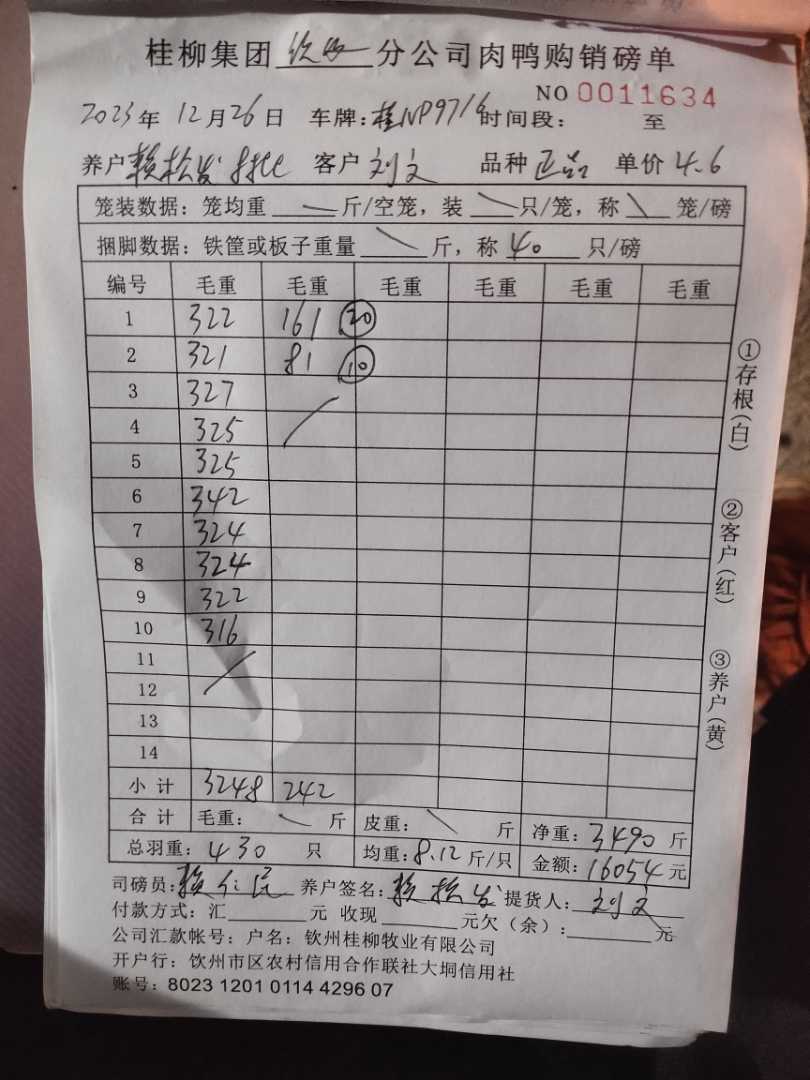 桂柳集团 钦州 分公司肉鸭购销磅单
NO 0011634
2023年 12月26日 车牌：桂NP9716 时间段： 至
养户 赖松发 客户 刘文 品种 正品 单价 4.6
笼装数据：笼均重 — 斤/空笼，装 \ 只/笼，称 \ 笼/磅
捆脚数据：铁筐或板子重量 \ 斤，称 40 只/磅
编号 毛重 毛重 毛重 毛重 毛重 毛重
1 322 161 20
2 321 81 10
3 327
4 325
5 325
6 342
7 324
8 324
9 322
10 316
11
12
13
14
小计 3248 242
合计 毛重： \ 斤 皮重： \ 斤 净重：3490 斤
总羽重：430 只 均重：8.12 斤/只 金额：16054 元
司磅员：赖仁民 养户签名：赖松发 提货人：刘文
付款方式：汇 元 收现 元欠（余）： 元
公司汇款帐号：户名：钦州桂柳牧业有限公司
开户行：钦州市区农村信用合作联社大垌信用社
账号：8023 1201 0114 4296 07
①存根（白）
②客户（红）
③养户（黄）